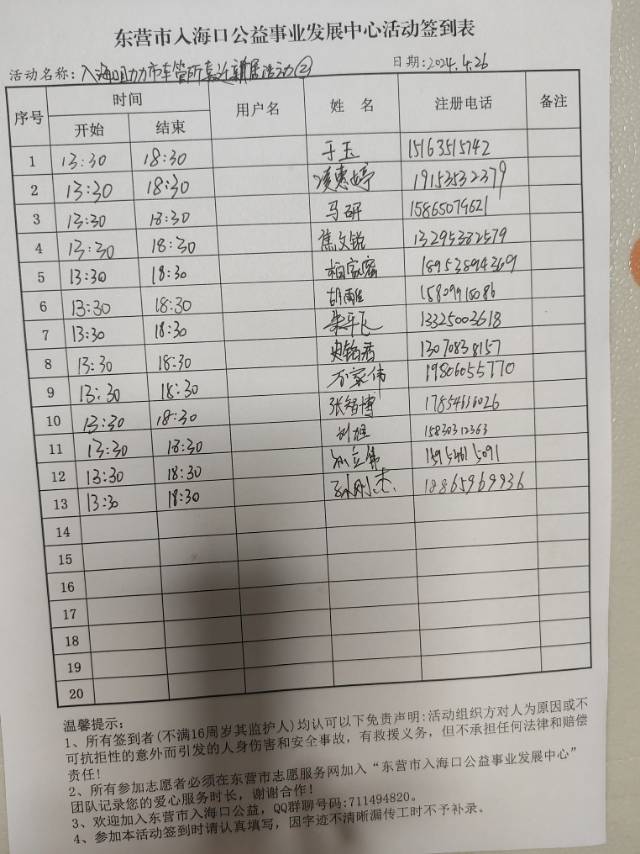 东营市入海口公益事业发展中心活动签到表
活动名称: 入海口助力市车管所喜迁新居活动② 日期: 2024.4.26
序号 时间 用户名 姓 名 注册电话 备注
开始 结束
1 13:30 18:30 于玉 15163515742
2 13:30 18:30 19153532379
3 13:30 18:30 马研 15865079621
4 13:30 18:30 焦文锐 13295382579
5 13:30 18:30 18953894369
6 13:30 18:30 胡雕 15809918086
7 13:30 18:30 宋平飞 13325003618
8 13:30 18:30 13070838157
9 13:30 18:30 万家伟 19806055770
10 13:30 18:30 张智博 17854616026
11 13:30 18:30 刘旭 15830312363
12 13:30 18:30 15954615091
13 13:30 18:30 孙刚杰 18865969936
14
15
16
17
18
19
20
温馨提示:
1、所有签到者(不满16周岁其监护人)均认可以下免责声明:活动组织方对人为原因或不
可抗拒性的意外而引发的人身伤害和安全事故，有救援义务，但不承担任何法律和赔偿
责任!
2、所有参加志愿者必须在东营市志愿服务网加入“东营市入海口公益事业发展中心”
团队记录您的爱心服务时长，谢谢合作!
3、欢迎加入东营市入海口公益，QQ群聊号码:711494820。
4、参加本活动签到时请认真填写，因字迹不清晰漏传工时不予补录。